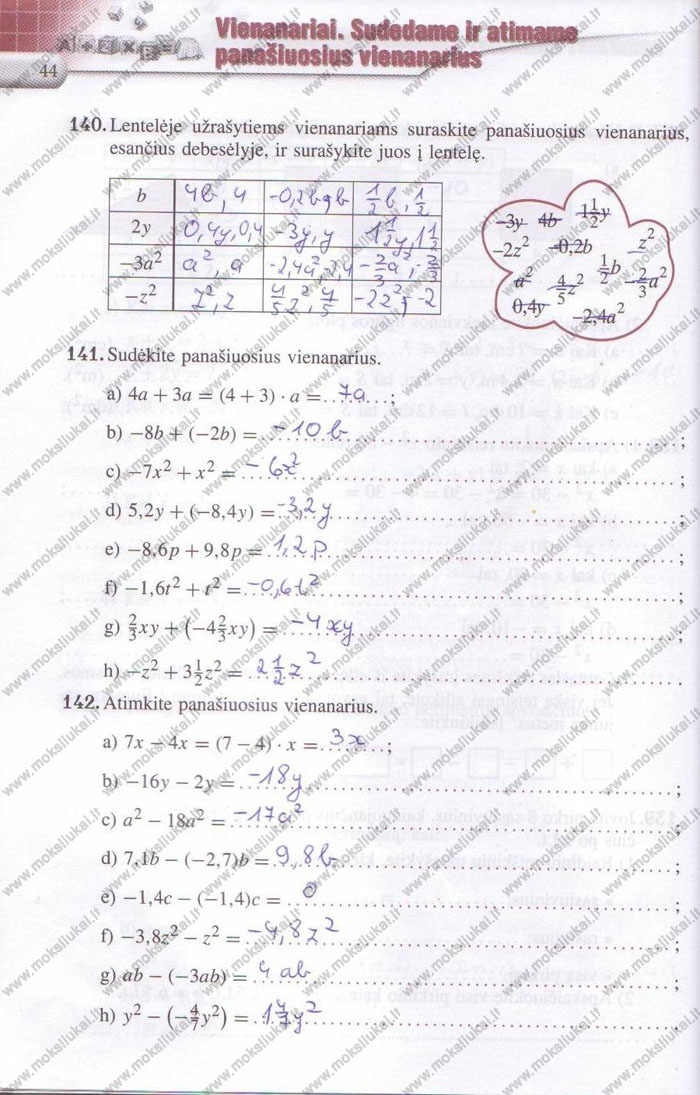 Vienanariai. Sudedame ir atimame
panašiuosius vienanarius
44
140. Lentelėje užrašytiems vienanariams suraskite panašiuosius vienanarius,
esančius debesėlyje, ir surašykite juos į lentelę.
b 4b, 4 -0,2b ½b, ½
2y 0,4y, 0,4 -3y, y 1½y, 1½
−3a² a², a -2,4a², -2,4 -⅔a², -⅔
−z² z², z ⅘z², ⅘ -2z², -2
−3y 4b 1½y
−2z² −0,2b z²
a² ⅘z² ½b −⅔a²
0,4y −2,4a²
141. Sudėkite panašiuosius vienanarius.
a) 4a + 3a = (4 + 3) · a = 7a ;
b) −8b + (−2b) = -10b ;
c) −7x² + x² = -6x² ;
d) 5,2y + (−8,4y) = -3,2y ;
e) −8,6p + 9,8p = 1,2p ;
f) −1,6t² + t² = -0,6t² ;
g) ⅔xy + (−4⅔xy) = -4xy ;
h) −z² + 3½z² = 2½z²
142. Atimkite panašiuosius vienanarius.
a) 7x − 4x = (7 − 4) · x = 3x ;
b) −16y − 2y = -18y ;
c) a² − 18a² = -17a² ;
d) 7,1b − (−2,7)b = 9,8b ;
e) −1,4c − (−1,4)c = 0 ;
f) −3,8z² − z² = -4,8z² ;
g) ab − (−3ab) = 4ab ;
h) y² − (−4/7y²) = 1 4/7y²
www.moksliukai.lt